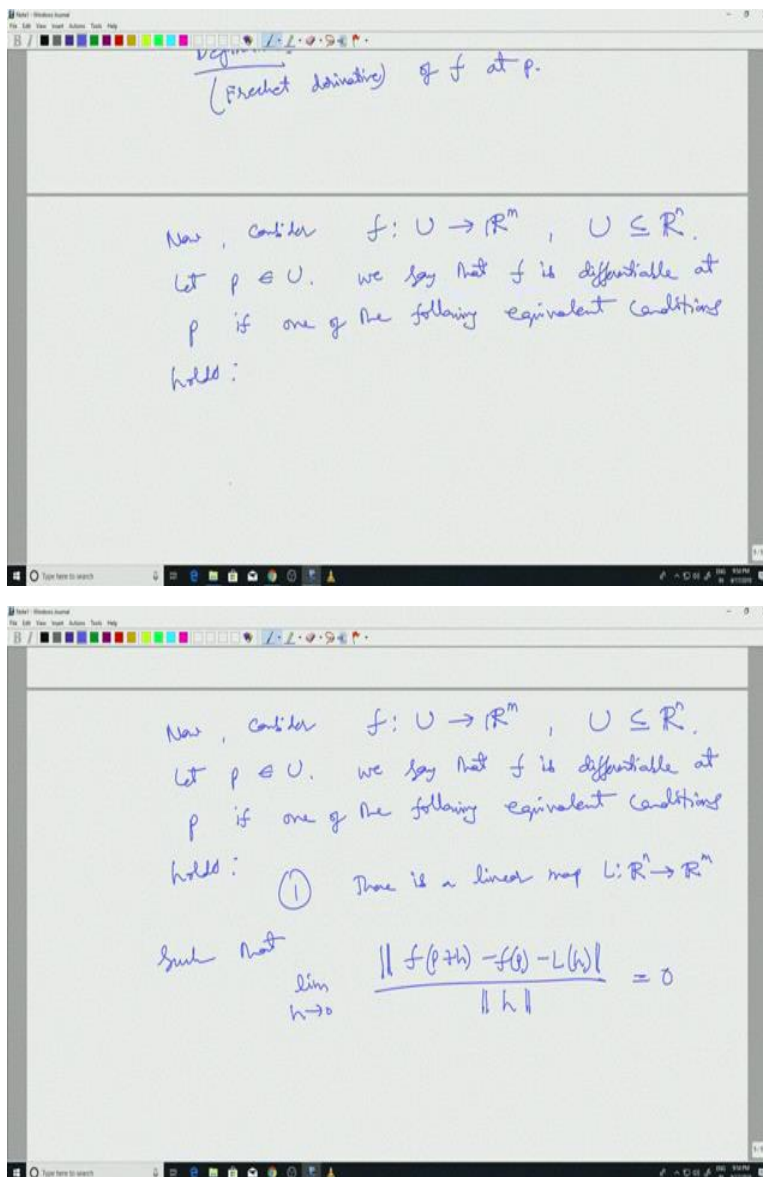 Note1 - Windows Journal
File Edit View Insert Actions Tools Help
(Frechet derivative) of f at p.
Now, consider f: U → ℝᵐ, U ⊆ ℝⁿ.
Let p ∈ U. we say that f is differentiable at
p if one of the following equivalent conditions
holds:
Type here to search
9:50 PM
Note1 - Windows Journal
File Edit View Insert Actions Tools Help
Now, consider f: U → ℝᵐ, U ⊆ ℝⁿ.
Let p ∈ U. we say that f is differentiable at
p if one of the following equivalent conditions
holds: ① There is a linear map L: ℝⁿ → ℝᵐ
Such that
lim h→0 || f(p+h) - f(p) - L(h) | / || h || = 0
Type here to search